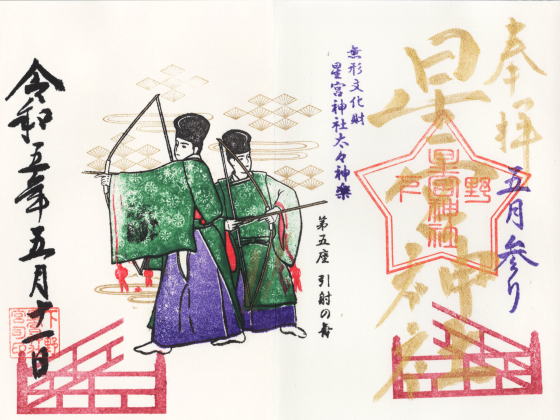 奉拝
星宮神社
五月参り
下野
星宮神社
無形文化財
星宮神社太々神楽
第五座 引射の舞
令和五年五月十一日